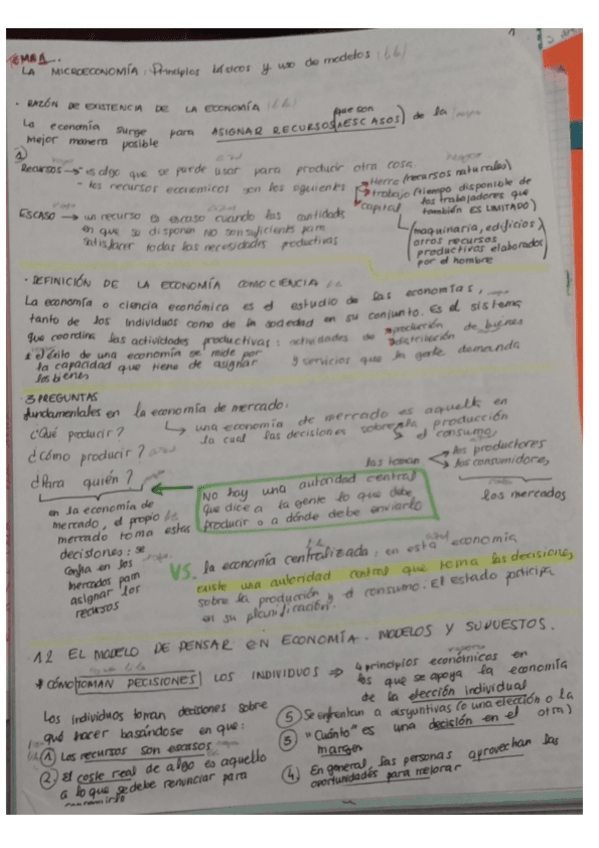 TEMA 1.
LA MICROECONOMÍA: Principios básicos y uso de modelos
1
· RAZÓN DE EXISTENCIA DE LA ECONOMÍA
La economía surge para ASIGNAR RECURSOS (que son ESCASOS) de la
mejor manera posible
①
Recursos → es algo que se puede usar para producir otra cosa.
- los recursos economicos son los siguientes
tierra (recursos naturales)
trabajo (tiempo disponible de
los trabajadores que
también ES LIMITADO)
capital
(maquinaria, edificios,
otros recursos
productivos elaborados
por el hombre)
ESCASO → un recurso es escaso cuando las cantidades
en que se disponen NO son suficientes para
satisfacer todas las necesidades productivas
· DEFINICIÓN DE LA ECONOMÍA COMO CIENCIA
La economía o ciencia económica es el estudio de las economías,
tanto de los individuos como de la sociedad en su conjunto. Es el sistema
que coordina las actividades productivas: actividades de
producción de bienes
distribución
y servicios que la gente demanda
el éxito de una economía se mide por
la capacidad que tiene de asignar
los bienes
3 PREGUNTAS
fundamentales en la economía de mercado.
¿Qué producir?
↳ una economía de mercado es aquella en
la cual las decisiones sobre la producción
y el consumo,
¿Cómo producir?
las toman
los productores
los consumidores,
los mercados
¿Para quién?
NO hay una autoridad central
que dice a la gente lo que debe
producir o a dónde debe enviarlo
en la economía de
mercado, el propio
mercado toma estas
decisiones: se
confia en los
mercados para
asignar los
recursos
VS. la economía centralizada: en esta economía
existe una autoridad central que toma las decisiones
sobre la producción y el consumo. El estado participa
en su planificación.
1.2 EL MODELO DE PENSAR EN ECONOMÍA. MODELOS Y SUPUESTOS.
* CÓMO TOMAN DECISIONES LOS INDIVIDUOS ⇒ 4 principios económicos en
los que se apoya la economía
de la elección individual
Los individuos toman decisiones sobre
qué hacer basándose en que:
① Los recursos son escasos
② El coste real de algo es aquello
a lo que se debe renunciar para
⑤ Se enfrentan a disyuntivas (o una elección o la
otra)
③ "Cuánto" es una decisión en el
margen
④ En general, las personas aprovechan las
oportunidades para mejorar